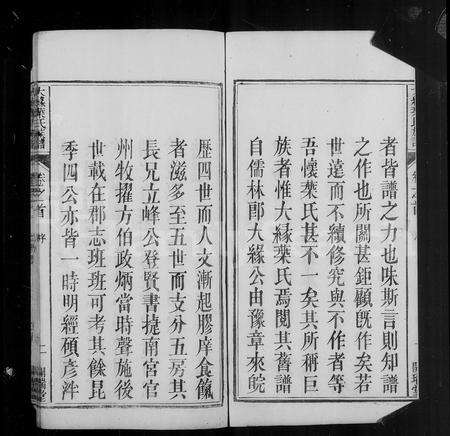 者皆譜之力也味斯言則知譜
之作也所關甚鉅顧旣作矣若
世遠而不續修究與不作者等
吾懷葉氏甚不一矣其所稱巨
族者惟大緣葉氏焉閱其舊譜
自儒林郎大緣公由豫章來皖
歷四世而人文漸起膠庠食餼
者滋多至五世而支分五房其
長兄立峰公登賢書捷南宮官
州牧擢方伯政炳當時聲施後
世載在郡志班班可考其餘昆
季四公亦皆一時明經碩彥泮